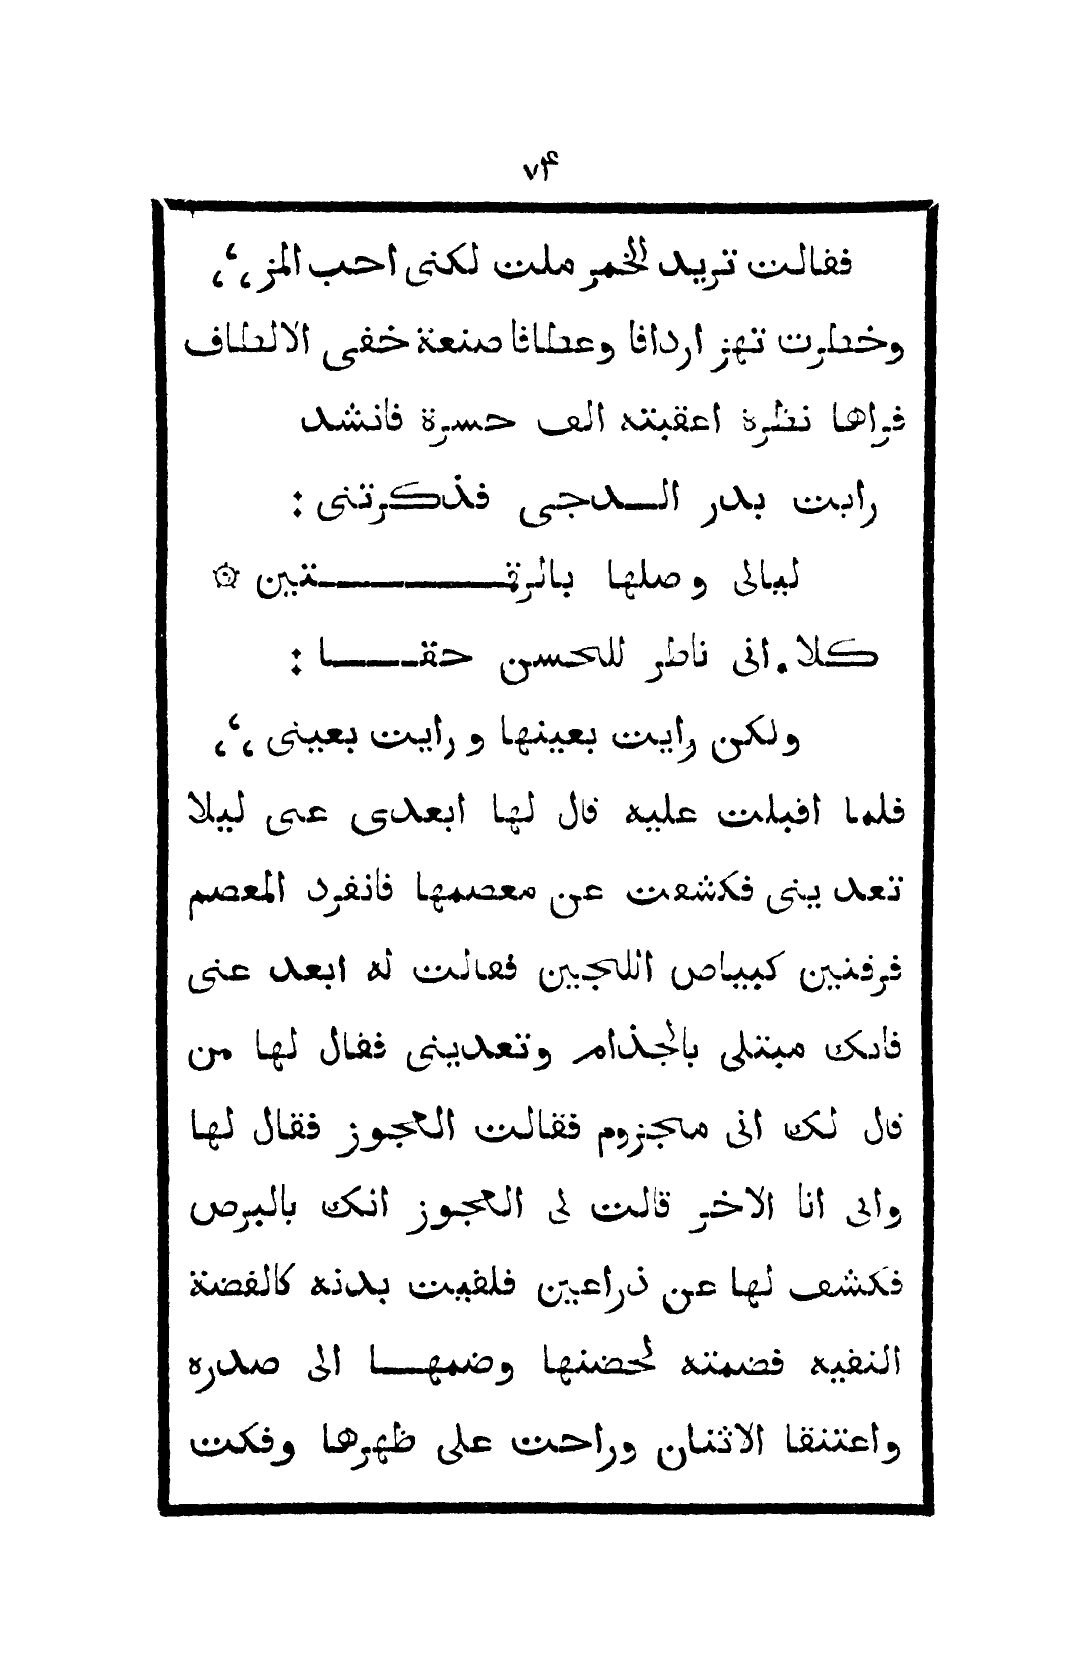 ٧۴
فقالت تريد الخمر ملت لكنى احب المز،‘،
وخطرت تهز اردافا وعطافا صنعة خفى الالطاف
فراها نظرة اعقبته الف حسرة فانشد
رايت بدر الـــدجى فذكرتنى :
ليالى وصلها بالرقـــــــــتين ۞
كلا.انى ناطر للحسن حقـــــا :
ولكن رايت بعينها و رايت بعينى ،‘،
فلما اقبلت عليه قال لها ابعدى عنى ليلا
تعد ينى فكشفت عن معصمها فانفرد المعصم
فرقنين كبياض اللجين فقالت له ابعد عنى
فانك مبتلى بالجذام وتعدينى فقال لها من
قال لك انى مجزوم فقالت العجوز فقال لها
وانى انا الاخر قالت لى العجوز انك بالبرص
فكشف لها عن ذراعين فلقيت بدنه كالفضة
النقيه فضمته لحضنها وضمهـــا الى صدره
واعتنقا الاثنان وراحت على ظهرها وفكت